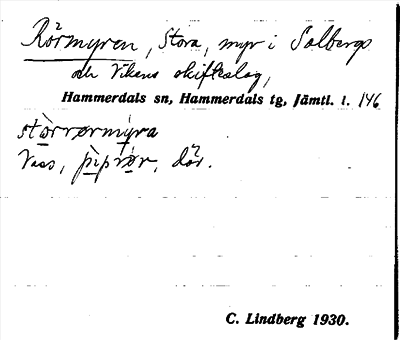 Rörmyren, Stora, myr i Solbergs
och Vikens skifteslag,
Hammerdals sn, Hammerdals tg, Jämtl. l. 146
stòrrørmýra
Vass, pìprør, där.
C. Lindberg 1930.